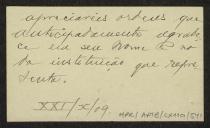 apreciaveis ordens que
antecipadamente agrade-
ce em seu nome e no
da instituição que repre
senta.
XXI/X/09.